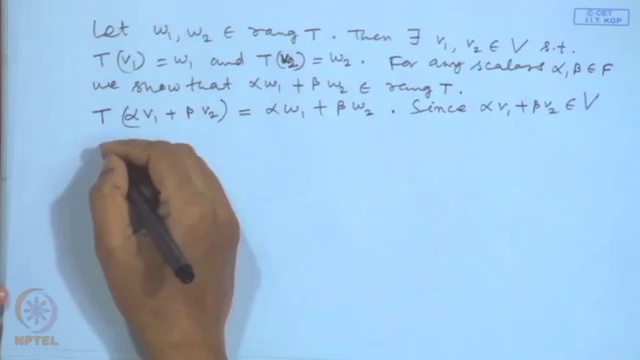 © CET
I.I.T. KGP
Let w₁, w₂ ∈ rang T. Then ∃ v₁, v₂ ∈ V s.t.
T(v₁) = w₁ and T(v₂) = w₂. For any scalars α, β ∈ F
we show that αw₁ + βw₂ ∈ rang T.
T(αv₁ + βv₂) = αw₁ + βw₂. Since αv₁ + βv₂ ∈ V
NPTEL